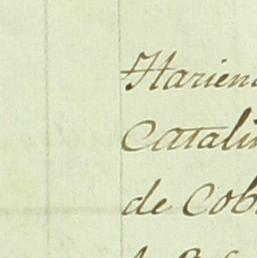 Harien
Catali
de Cob